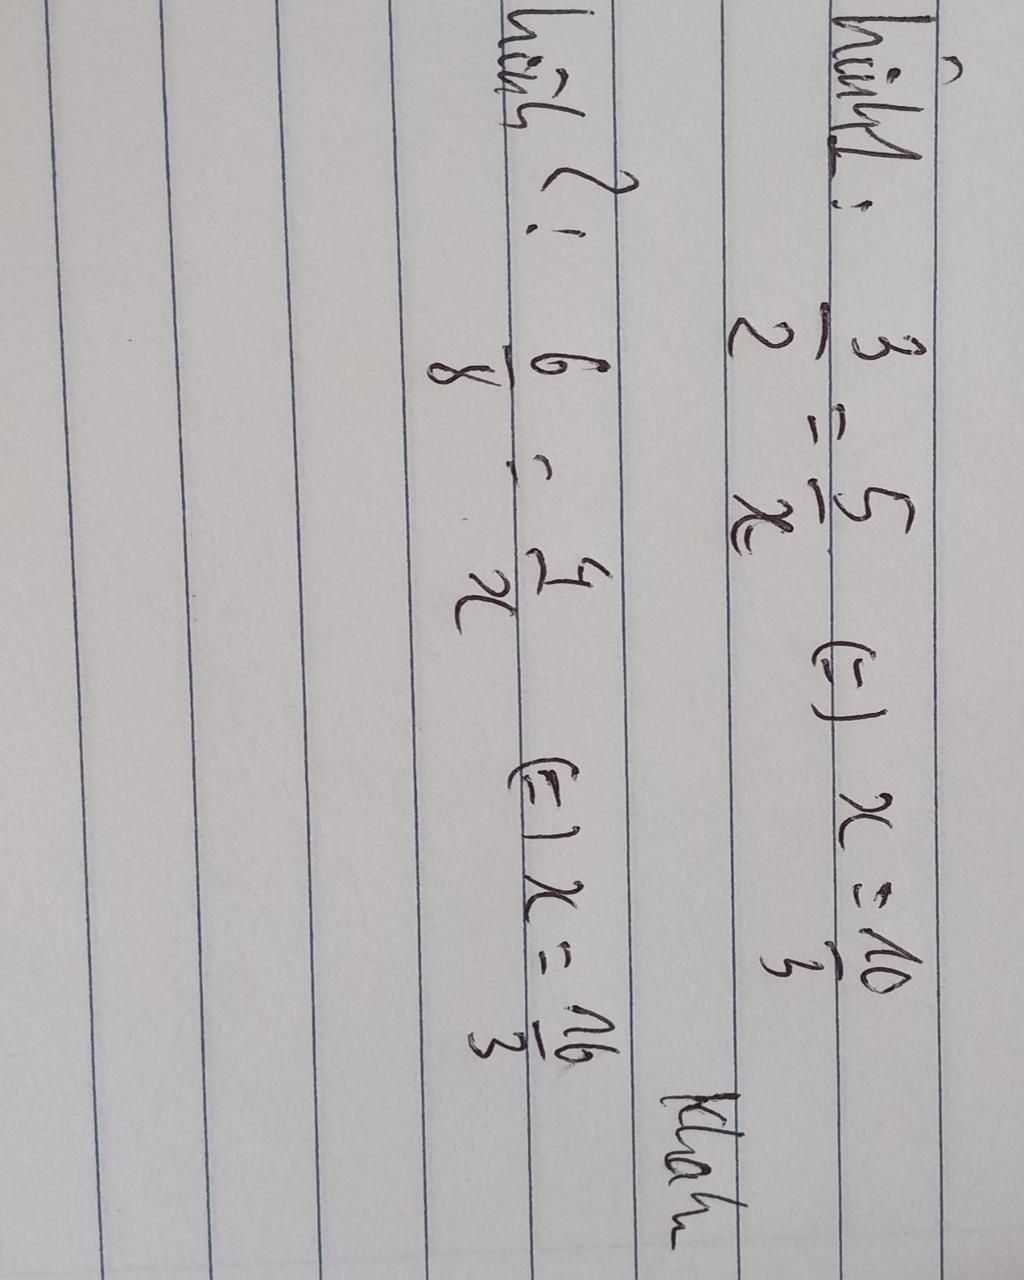 hình 1 : 3/2 = 5/x (=) x = 10/3
hình 2 : 6/8 = 4/x (=) x = 16/3
Khah